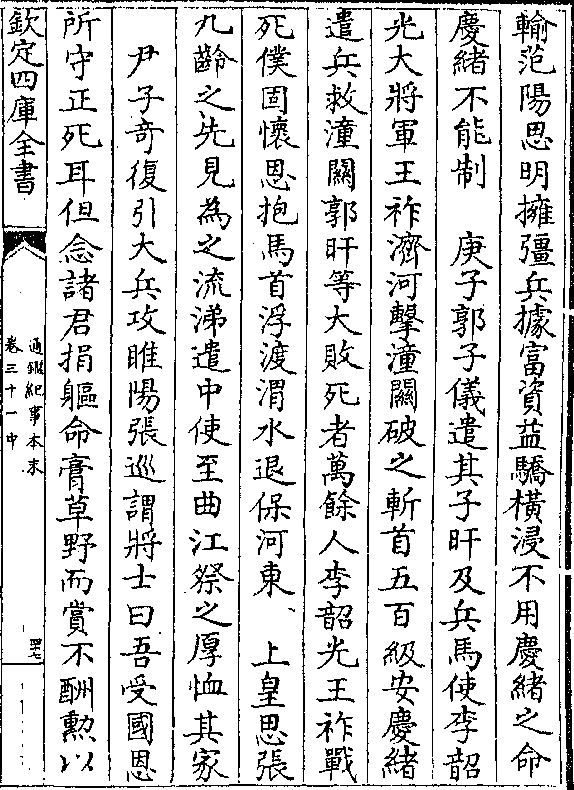 輸范陽思明擁彊兵據富資益驕橫浸不用慶緒之命
慶緒不能制　庚子郭子儀遣其子旰及兵馬使李韶
光大將軍王祚濟河擊潼關破之斬首五百級安慶緒
遣兵救潼關郭旰等大敗死者萬餘人李韶光王祚戰
死僕固懷恩抱馬首浮渡渭水退保河東　上皇思張
九齡之先見為之流涕遣中使至曲江祭之厚恤其家
尹子奇復引大兵攻睢陽張巡謂將士曰吾受國恩
所守正死耳但念諸君捐軀命膏草野而賞不酬勲以
欽定四庫全書
通鑑紀事本末
卷三十一中
四十七